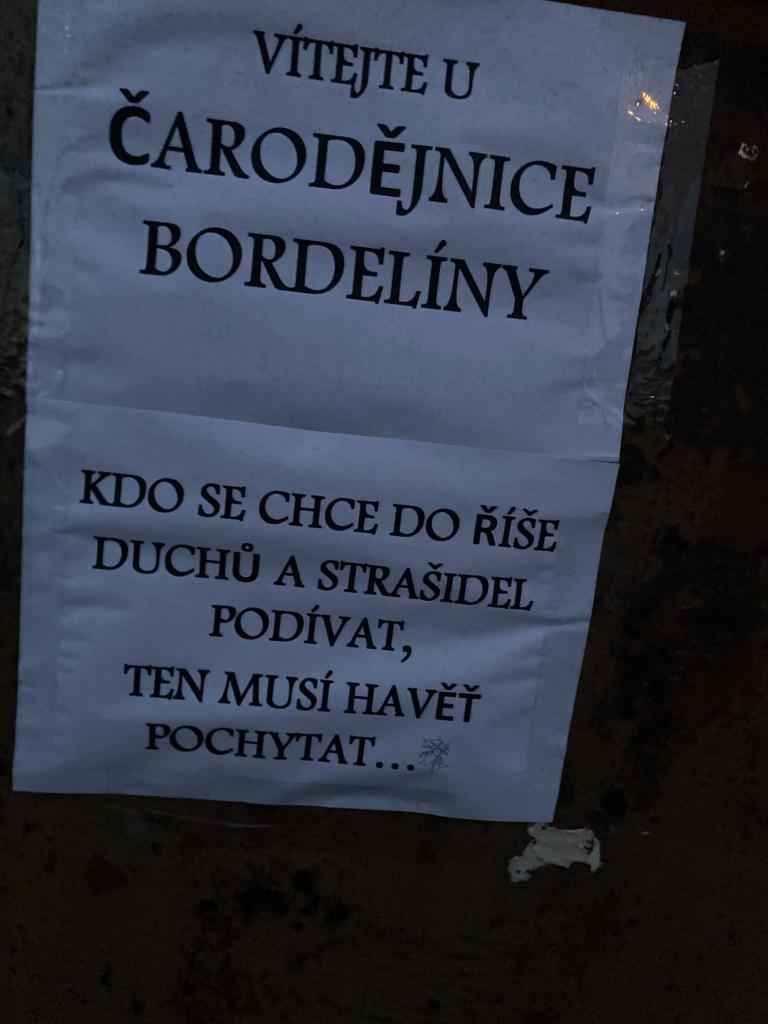 VÍTEJTE U
ČARODĚJNICE
BORDELÍNY
KDO SE CHCE DO ŘÍŠE
DUCHŮ A STRAŠIDEL
PODÍVAT,
TEN MUSÍ HAVĚŤ
POCHYTAT...